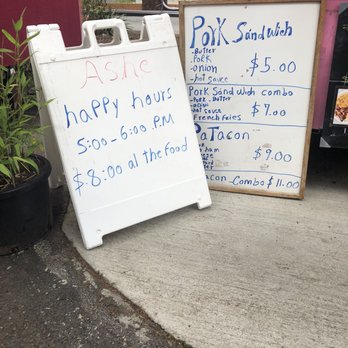 Ashe
happy hours
5:00-6:00 P.M
$8:00 al the food
Pork Sandwich
-Butter
-Pork
-onion
-hot sauce
$5.00
Pork Sandwich combo
-Pork -Butter
-onion
-hot sauce
-French Fries
$7.00
PaTacon
$9.00
-Combo $11.00